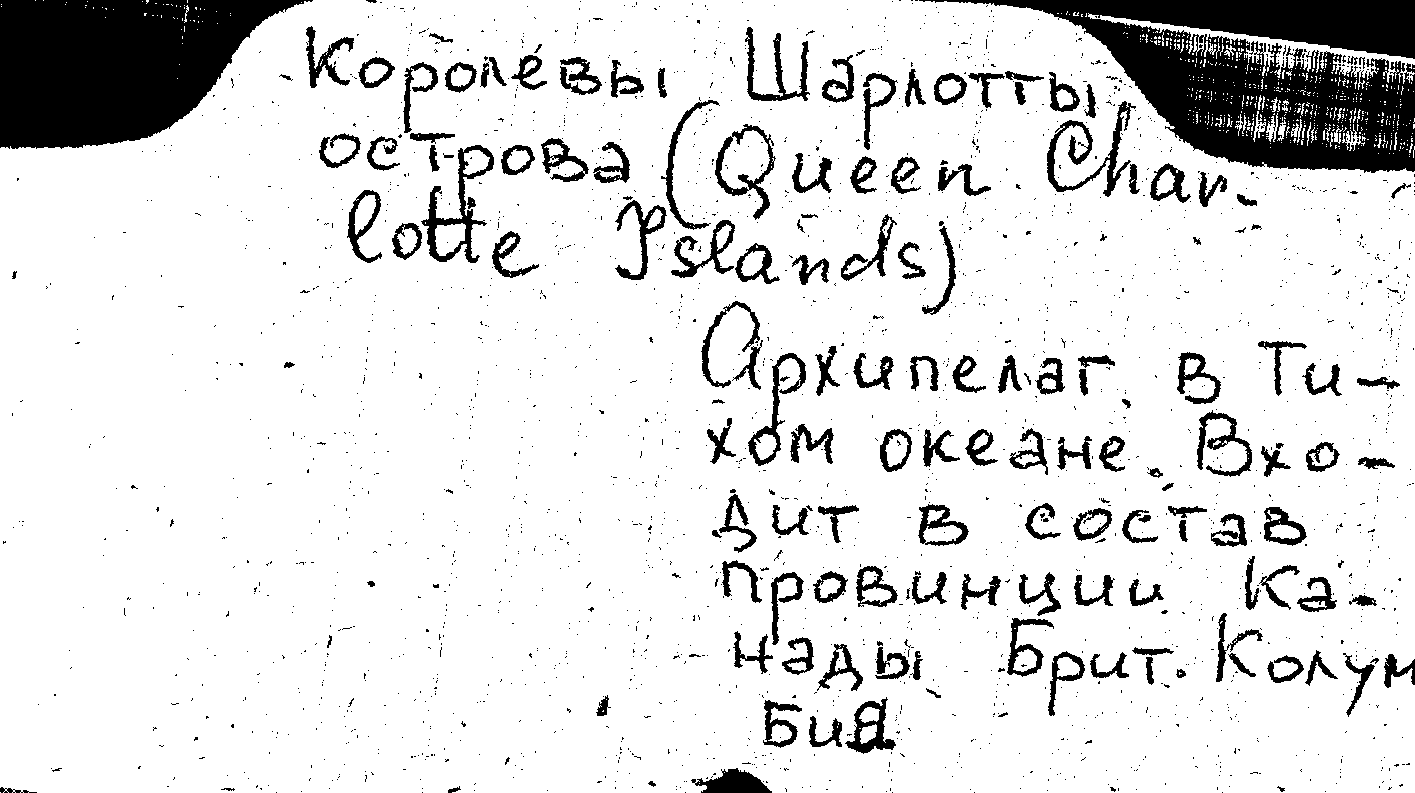 Королевы Шарлотты
острова (Queen Char-
lotte Islands)
Архипелаг в Ти-
хом океане. Вхо-
дит в состав
провинции Ка-
нады Брит. Колум
бия.